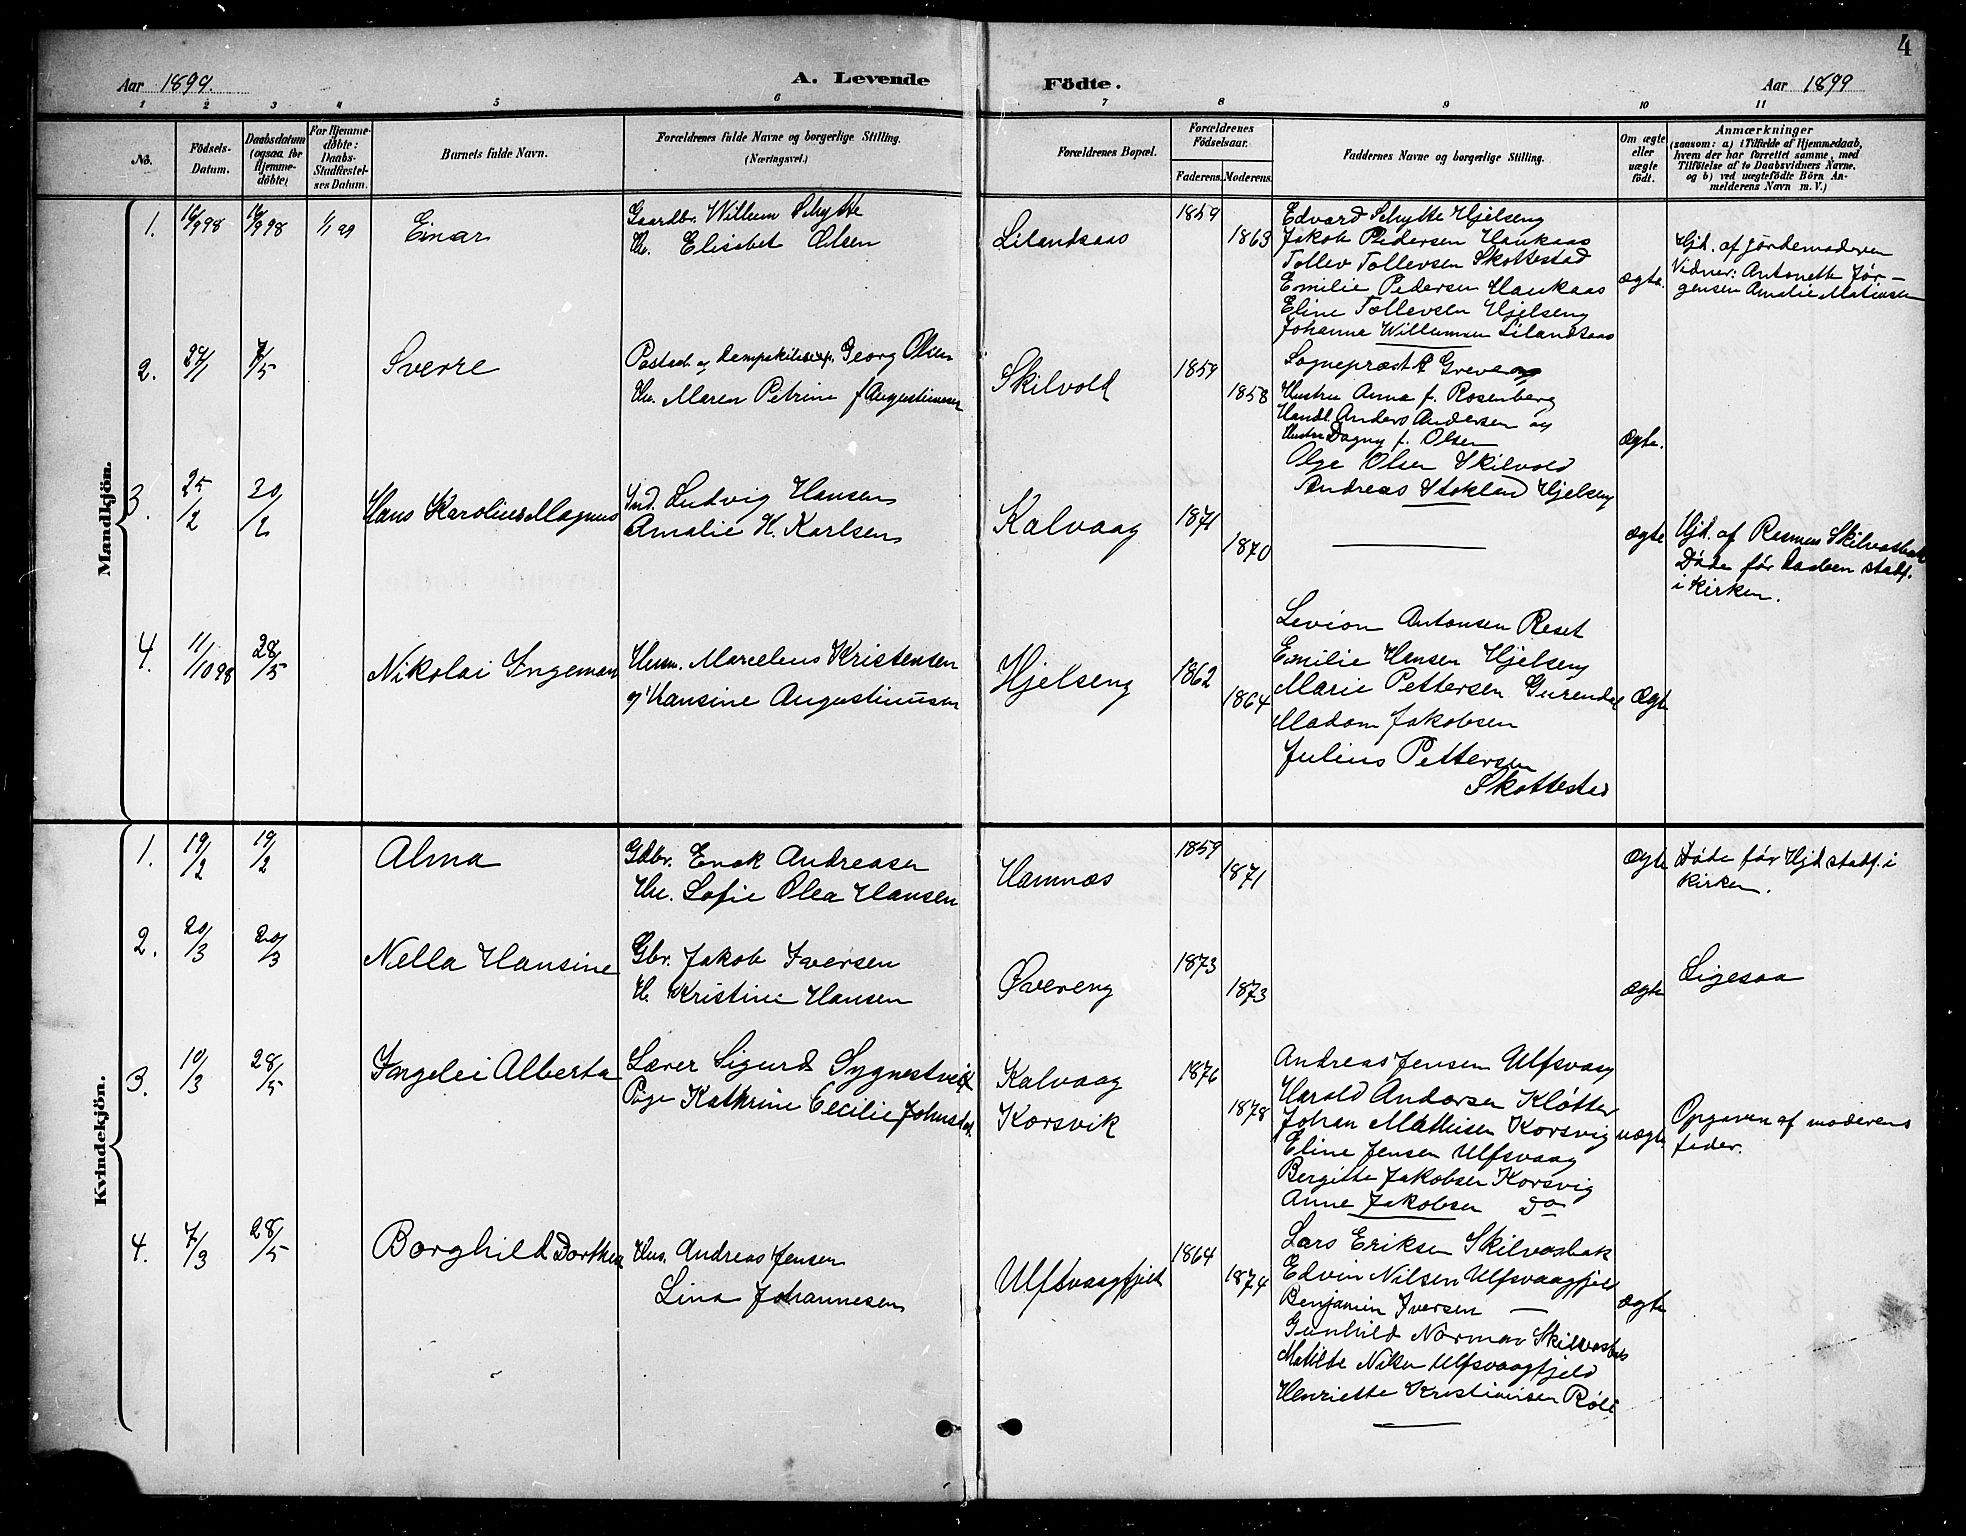 4
Aar 1899.
A. Levende
Födte.
Aar 1899
1 2 3 4 5 6 7 8 9 10 11
No.
Födsels-Datum.
Daabsdatum (ogsaa for Hjemme-döbte)
For Hjemme-döbte: Daabs-Stadfæstel-ses Datum.
Barnets fulde Navn.
Forældrenes fulde Navne og borgerlige Stilling.
(Næringsvei.)
Forældrenes Bopæl.
Forældrenes Födselsaar.
Faderens. Moderens.
Faddernes Navne og borgerlige Stilling.
Om ægte eller uægte födt.
Anmærkninger
(saasom: a) i Tilfælde af Hjemmedaab,
hvem der har forrettet samme, med
Tilföielse af to Daabsvidners Navne.
og b) ved uægtefödte Börn An-
melderens Navn m. V.)
Mandkjön.
1. 16/9 98 16/9 98 1/1 99 Einar
Gaardbr. Willum Schytte
Hu. Elisabet Olsen
Lilandsaas
1859
1863
Edvard Schytte Hjelseng
Jakob Pedersen Haukaas
Tollev Tollevsen Skottestad
Emilie Pedersen Haukaas
Eline Tollevsen Hjelseng
Johanna Willumsen Lilandsaas
ægte.
Hjd. af jordemoderen
Vidner: Antonette Jør-
gensen Amalie Matiasen
2. 24/1 7/5 Sverre
Postaab. og dampskibsexp. Georg Olsen
Hu. Maren Petrine f Augustinusen
Skilvold
1859
1858
Sogneprest Greve og
Hustru Anna f. Rosenberg
Handl. Anders Andersen og
Hustru Dagny f. Olsen
Olge Olsen Skilvold
Andreas Stokland Hjelseng
ægte.
3. 25/2 20/2 Hans Karolius Magnus
Ind. Ludvig Hansen
Amalie H. Karlsen
Kalvaag
1871
1870
ægte
Hjd. af Rasmus Skilvasbak
Døde før daaben stadf.
i kirken.
4. 11/10 98 28/5 Nikolai Ingeman
Husm. Marcelius Kristensen
og Hansine Augustinusen
Hjelseng
1862
1864
Levion Antonsen Reset
Emilie Hansen Hjelseng
Marie Pettersen Gurendal
Madam Jakobsen
Julius Pettersen
Skottestad
ægte
Kvindekjön.
1. 19/2 19/2 Alma
Gdbr. Enok Andreasen
Hu. Sofie Olea Hansen
Hamnæs
1859
1871
ægte
Døde før Hjd stadf. i
kirken.
2. 20/3 20/3 Nella Hansine
Gbr. Jakob Iversen
H. Kristine Hansen
Øvereng
1873
1873
ægte
Ligesaa
3. 10/3 28/5 Ingelei Alberta
Lærer Sigurd Sygnestveit
Pige Kathrine Cecilie Johnsd.
Kalvaag
Korsvik
1876
1878
Andreas Jensen Ulfsvaag
Harold Andersen Kløtter
Johan Mathisen Korsvig
Eline Jensen Ulfsvaag
Bergitte Jakobsen Korsvig
Anne Jakobsen Do
uægte
Opgaven af moderens
fader.
4. 7/3 28/5 Borghild Dorthea
Hus. Andreas Jensen
Lina Johannesen
Ulfsvaagfjeld
1864
1874
Lars Eriksen Skilvasbak
Edvin Nilsen Ulfsvaagfjeld
Benjamin Iversen —
Gunhild Norman Skilvasbak
Matilde Nilsen Ulfsvaagfjeld
Henriette Kristiansen Røli
ægte